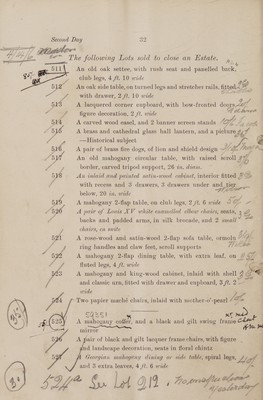 Second Day
22
The following Lots sold to close an Estate.
511 An old oak settee, with rush seat and panelled back,
club legs, 4 ft. 10 wide
512 An oak side table, on turned legs and stretcher rails, fitted
with drawer, 2 ft. 10 wide
513 A lacquered corner cupboard, with bow-fronted doors,
figure decoration, 2 ft. wide
514 A carved wood easel, and 2 banner screen stands
515 A brass and cathedral glass hall lantern, and a picture
—Historical subject
516 A pair of brass fire dogs, of lion and shield design
517 An old mahogany circular table, with raised scroll
border, carved tripod support, 26 in. diam.
518 An inlaid and painted satin-wood cabinet, interior fitted
with recess and 3 drawers, 3 drawers under and tier
below, 20 in. wide
519 A mahogany 2-flap table, on club legs, 2 ft. 6 wide
520 A pair of Louis XV white enamelled elbow chairs, seats,
backs and padded arms, in silk brocade, and 2 small
chairs, en suite
521 A rose-wood and satin-wood 2-flap sofa table, ormolu
ring handles and claw feet, scroll supports
522 A mahogany 2-flap dining table, with extra leaf, on
fluted legs, 4 ft. wide
523 A mahogany and king-wood cabinet, inlaid with shell
and classic urn, fitted with drawer and cupboard, 3 ft. 2
wide
524 Two papier maché chairs, inlaid with mother-o'-pearl
525 A mahogany coffer, and a black and gilt swing frame
mirror
526 A pair of black and gilt lacquer frame chairs, with figure
and landscape decoration, seats in floral chintz
527 A Georgian mahogany dining or side table, spiral legs,
and 3 extra leaves, 4 ft. 6 wide
See Lot 212.